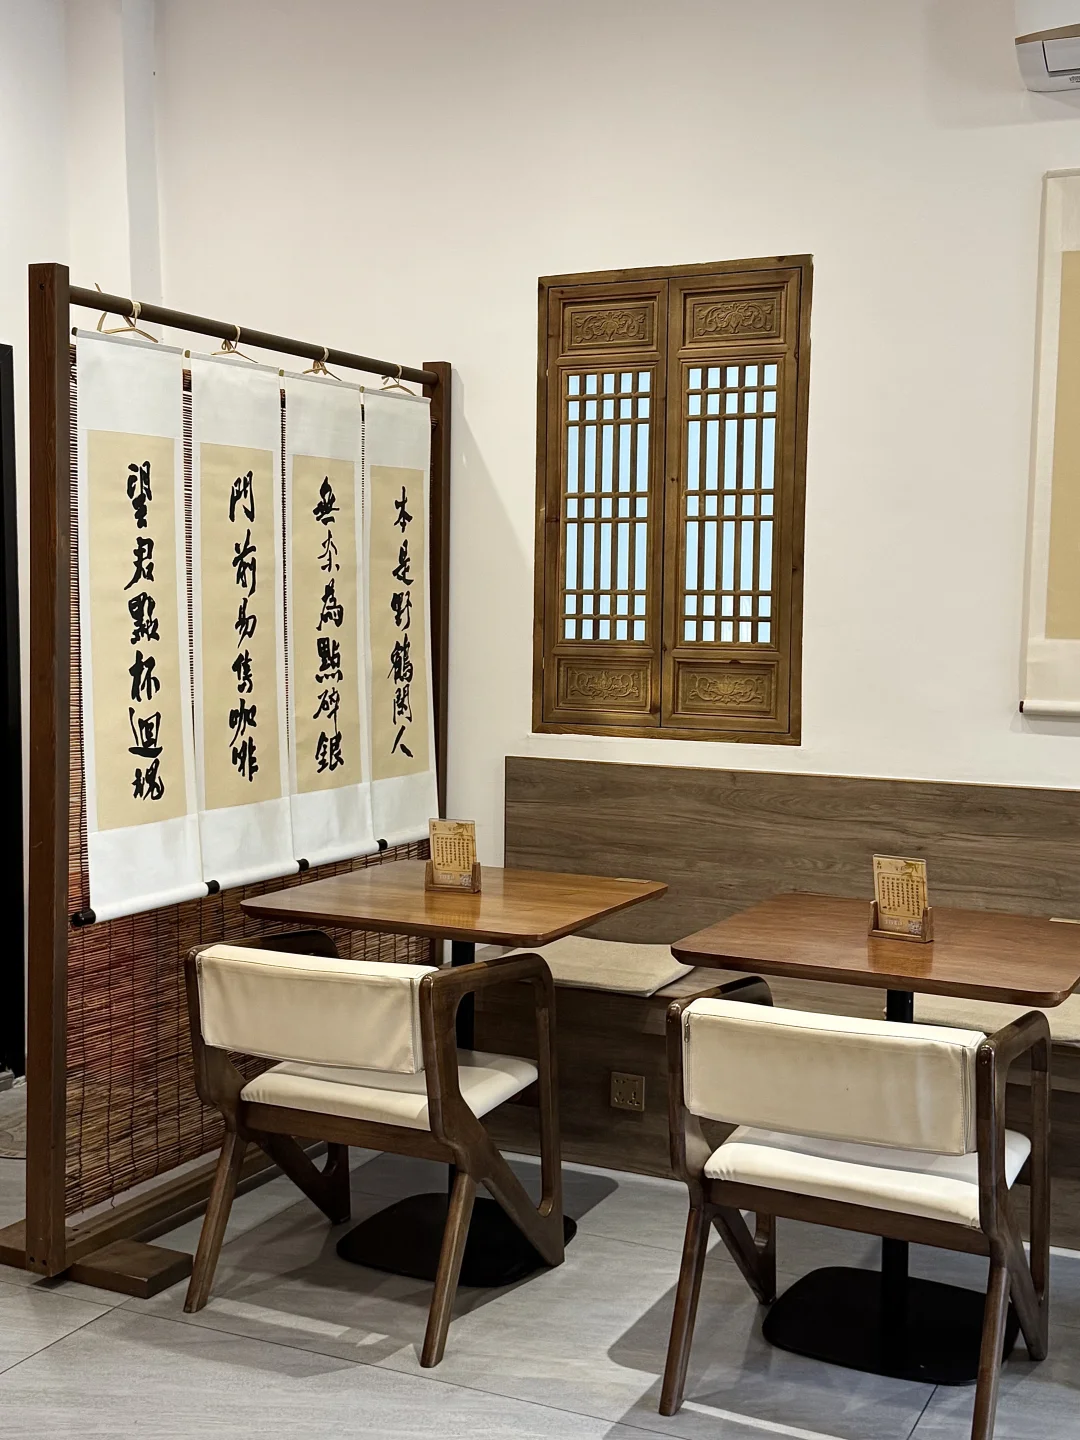 本是野鶴閒人
無奈為點碎銀
門前易售咖啡
望君點杯迴魂